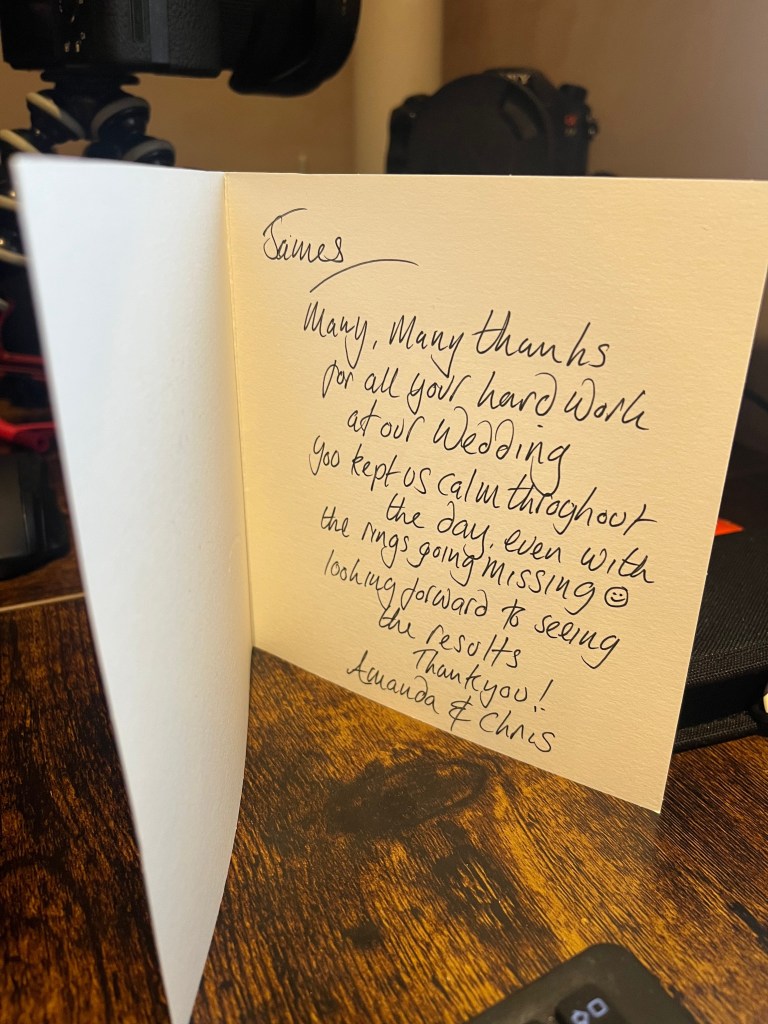 James
Many, Many thanks
for all your hard work
at our Wedding
you kept us calm throghout
the day, even with
the rings going missing ☺
looking forward to seeing
the results
Thankyou!
Amanda & Chris
SONY